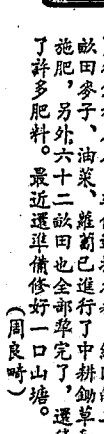 畝田麥子、油菜、蘿蔔已進行了中耕鋤草
施肥，另外六十二畝田也全部犂完了，還
了許多肥料。最近還準備修好一口山塘。
（周良畸）